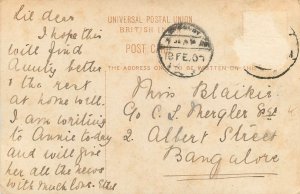 Lil dear
I hope this
will find
Aunty better
& the rest
at home well.
I am writing
to Annie today
and will give
her all the news
with much love. Ethel
UNIVERSAL POSTAL UNION
BRITISH
POST C
THE ADDRESS ON
BE WRITTEN ON
FE.07
Miss Blaikie
C/o C. S. Mergler Esq
2 Albert Street
Bangalore